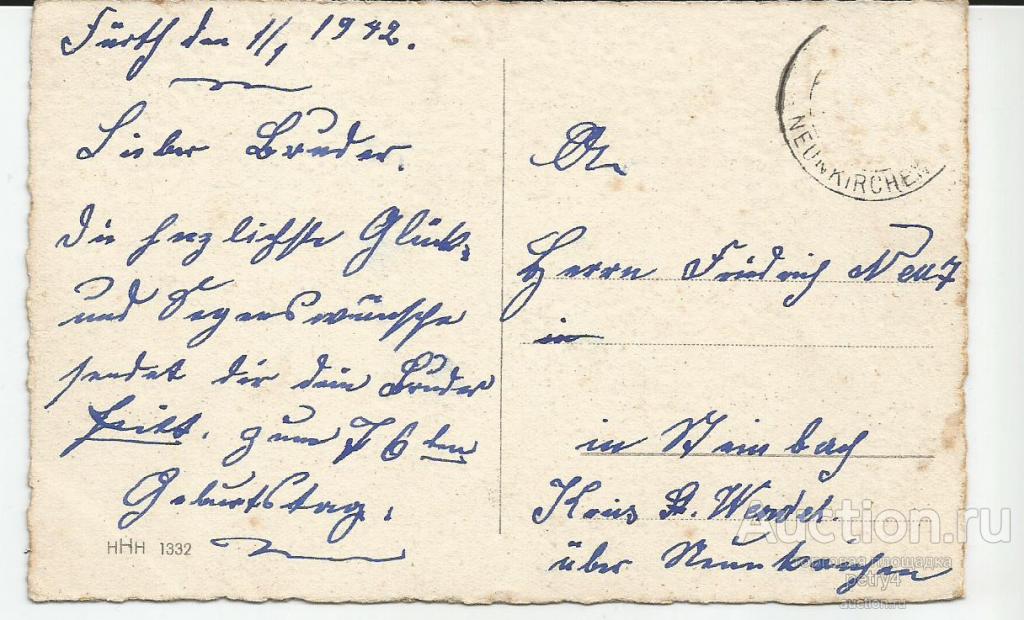 Fürth den 1/1 1942.
Lieber Bruder.
die herzlichste Glück-
und Segenswünsche
sendet dir dein Bruder
zum 76ten
Geburtstag.
HHH 1332
NEUNKIRCHEN
An
Herrn Friedrich
in
in Steinbach
Kreis St. Wendel.
über Neunkirchen
Auction.ru
торговая площадка
petry4
auction.ru